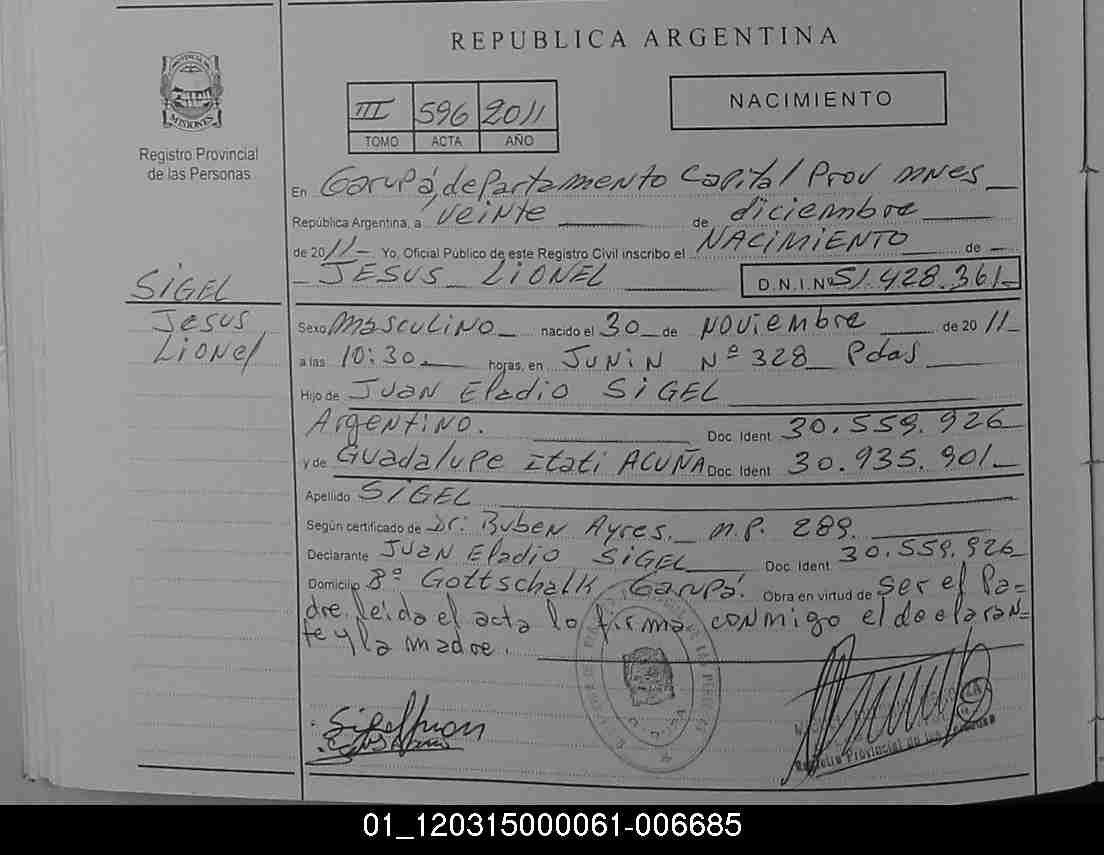 REPUBLICA ARGENTINA
PROVINCIA DE
MISIONES
Registro Provincial
de las Personas
III 596 2011
TOMO ACTA AÑO
NACIMIENTO
En Garupá, departamento Capital Prov MNES
República Argentina, a veinte de diciembre
de 2011 - Yo, Oficial Público de este Registro Civil inscribo el NACIMIENTO de
JESUS LIONEL D.N.I.Nº 51.428.361-
SIGEL
Jesus
Lionel
Sexo masculino nacido el 30 de noviembre de 2011
a las 10:30 horas, en JUNIN Nº 328 Pdas
Hijo de Juan Eladio SIGEL
Argentino. Doc. Ident 30.559.926
y de Guadalupe Itati ACUÑA Doc. Ident 30.935.901-
Apellido SIGEL
Según certificado de Dr. Ruben Ayres. M.P. 289.
Declarante Juan Eladio SIGEL Doc. Ident 30.559.926
Domicilio Bº Gottschalk Garupá. Obra en virtud de ser el Pa-
dre. leida el acta lo firma conmigo el declaran-
te y la madre.
Sigel Juan
Registro Provincial de las Personas
01_120315000061-006685